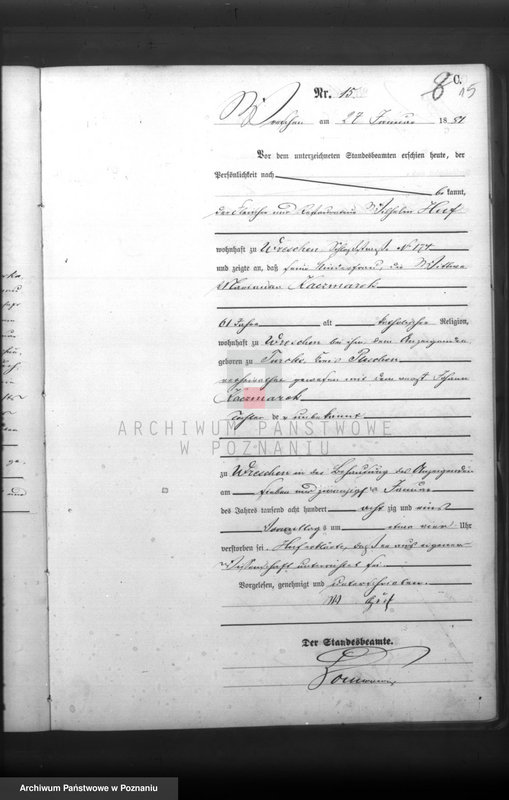 C.
8
15
Nr. 15.
Wreschen am 27 Januar 1881
Vor dem unterzeichneten Standesbeamten erschien heute, der
Persönlichkeit nach
be kannt,
der und Restaurateur Wilhelm Huf
wohnhaft zu Wreschen, Schloßstraße No 174
und zeigte an, daß seine Kinderfrau, die Wittwe
Marianna Kaczmarek
61 Jahre alt katholischer Religion,
wohnhaft zu Wreschen bei ihm, dem Anzeigenden
geboren zu Turcko, Kreis Pleschen
verheirathet gewesen mit dem Johann
Kaczmarek
Tochter de r unbekannt
ARCHIWUM PAŃSTWOWE
W POZNANIU
zu Wreschen in der Behausung des Anzeigenden
am sieben und zwanzigsten Januar
des Jahres tausend acht hundert acht zig und eins
Vormittags um etwa vier Uhr
verstorben sei. Huf erklärte, daß er aus eigener
Wissenschaft unterrichtet sei.
Vorgelesen, genehmigt und unterschrieben.
W Huf
Der Standesbeamte.
Archiwum Państwowe w Poznaniu